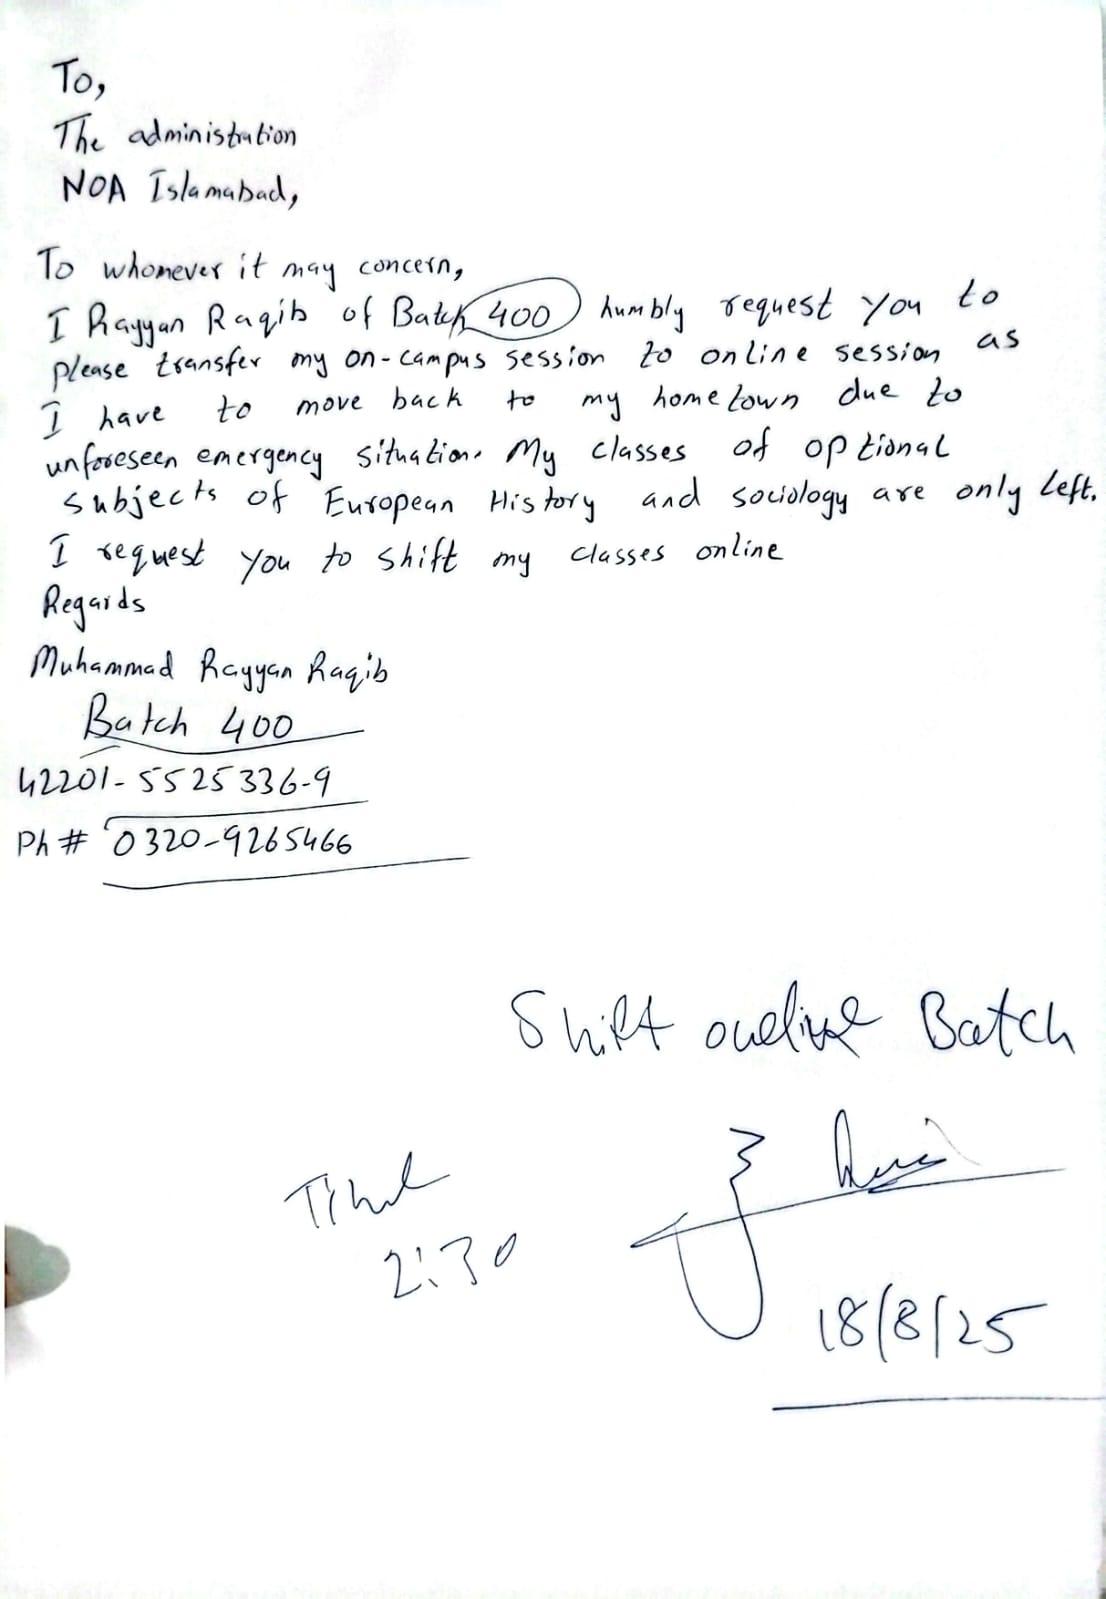 To,
The administration
NOA Islamabad,
To whomever it may concern,
I Rayyan Raqib of Batch 400 humbly request you to
please transfer my on-campus session to online session as
I have to move back to my hometown due to
unforeseen emergency situation. My classes of optional
subjects of European History and sociology are only left.
I request you to shift my classes online
Regards
Muhammad Rayyan Raqib
Batch 400
42201-5525336-9
Ph # 0320-9265466
Shift online Batch
Time
2:30
18/8/25